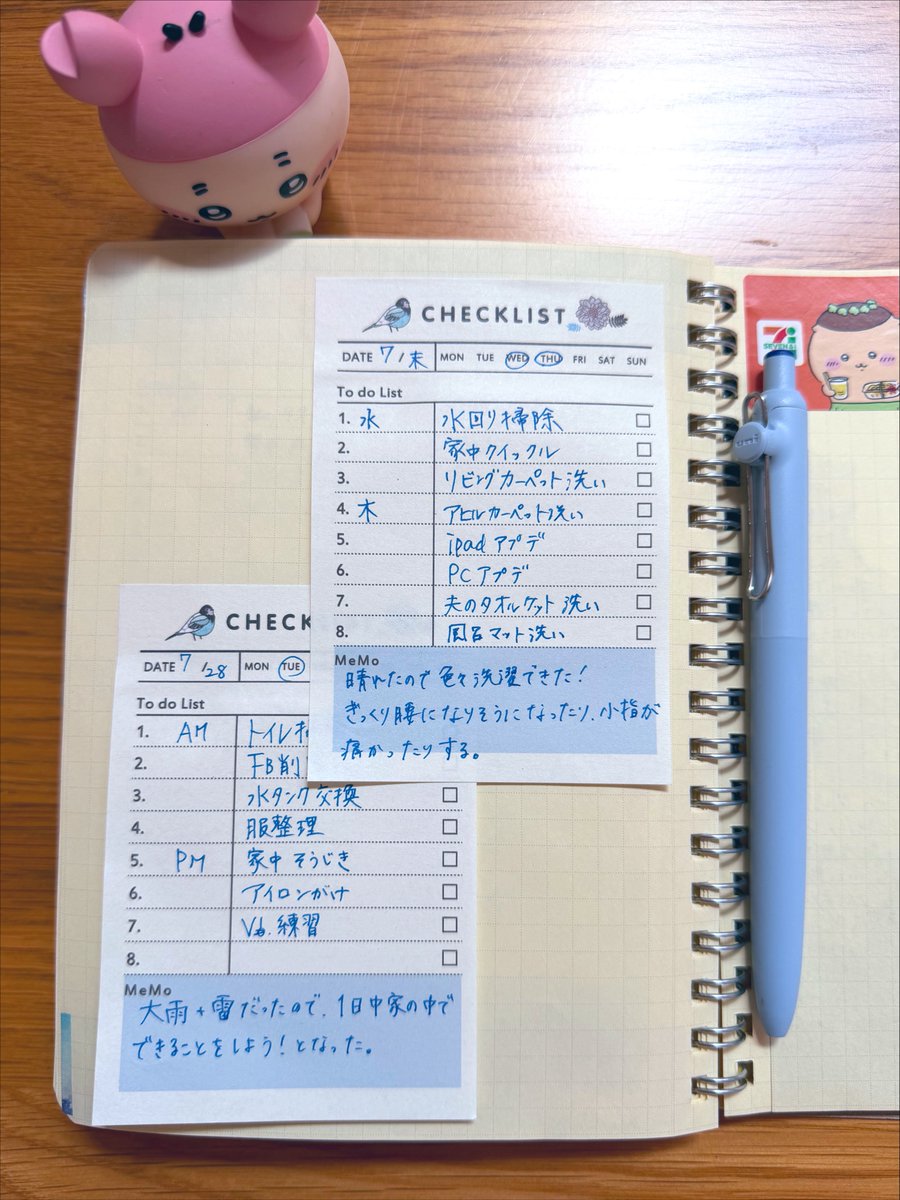 CHECKLIST
DATE 7/末 MON TUE WED THU FRI SAT SUN
To do List
1. 水 水回り掃除
2. 家中クイックル
3. リビングカーペット洗い
4. 木 アヒルカーペット洗い
5. ipadアプデ
6. PCアプデ
7. 夫のタオルケット洗い
8. 風呂マット洗い
MeMo
晴れたので色々洗濯できた!
ぎっくり腰になりそうになったり、小指が
痛かったりする。
CHECK
DATE 7/28 MON TUE
To do List
1. AM トイレ
2. FB削
3. 水タンク交換
4. 服整理
5. PM 家中そうじき
6. アイロンがけ
7. Vo.練習
8.
MeMo
大雨+雷だったので、1日中家の中で
できることをしよう!となった。
SEVEN&i
uni